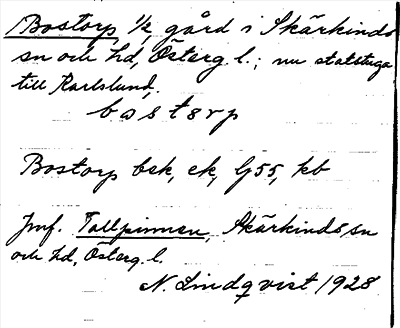 Bostorp, 1/2, gård i Skärkinds
sn och hd, Österg. l.; nu statstuga
till Karlslund.
bostorp
Bostorp bsk, ek, G55, kb
Jmf. Tallpinnen, Skärkinds sn
och hd, Österg. l.
N. Lindqvist 1928